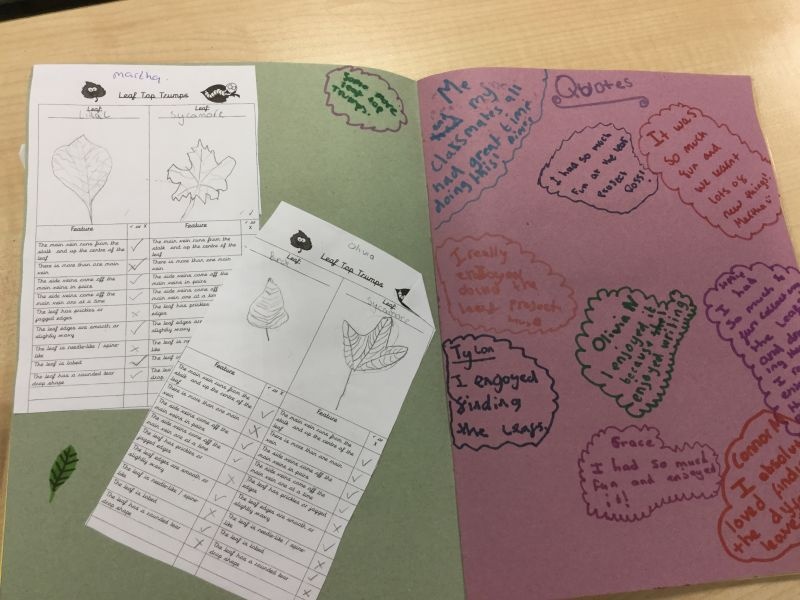 martha.
Leaf Top Trumps
Leaf
Lilac
Leaf
Sycamore
Feature
✓ or X
Feature
✓ or X
The main vein runs from the
stalk and up the centre of the
leaf
There is more than one main
vein
The side veins come off the
main veins in pairs
The side veins come off the
main vein one at a time
The leaf has prickles or
jagged edges
The leaf edges are smooth or
slightly wavy
The leaf is needle-like / spine-
like
The leaf is lobed
The leaf has a rounded tear
drop shape
The main vein runs from the
stalk and up the centre of the
leaf
There is more than one main
vein
The side veins come off the
main veins in pairs
The side veins come off the
main vein one at a time
The leaf has prickles
jagged edges
The leaf edges ar
slightly wavy
The leaf is
like
The leaf
Some more
leaf top
Trumps.
Olivia
Leaf Top Trumps
Leaf
Sycamore
Feature
✓ or X
Feature
The main vein runs from the
stalk and up the centre of the
leaf
There is more than one main
vein
The side veins come off the
main veins in pairs
The side veins come off the
main vein are at a time
The leaf has prickles or
jagged edges
The leaf edges are smooth or
slightly wavy
The leaf is needle-like / spine-
like
The leaf is lobed
The leaf has a rounded tear
drop shape
The main vein runs from the
stalk and up the centre of the
leaf
There is more than one main
vein
The side veins come off the
main veins in pairs
The side veins come off the
main vein are at a time
The leaf has prickles or jagged
edges
The leaf edges are smooth or
slightly wavy
The leaf is needle-like / spine-
like
The leaf is lobed
The leaf has a rounded tear
drop shape
Quotes
Me
my
Classmates all
had great time
doing this!
I had so much
fun at the leaf
project
It was
so much
fun and
we learnt
lots of
new things!!
Martha
I really
enjoyed
doing the
leaf project
Olivia N
I enjoyed it
because I
enjoyed writing
I had
so much
fun
the leaf
and
Tylon
I enjoyed
finding
the leafs.
Grace
I had so much
fun and enjoyed
it!
Connor M
I absolu
loved findin
the
leave